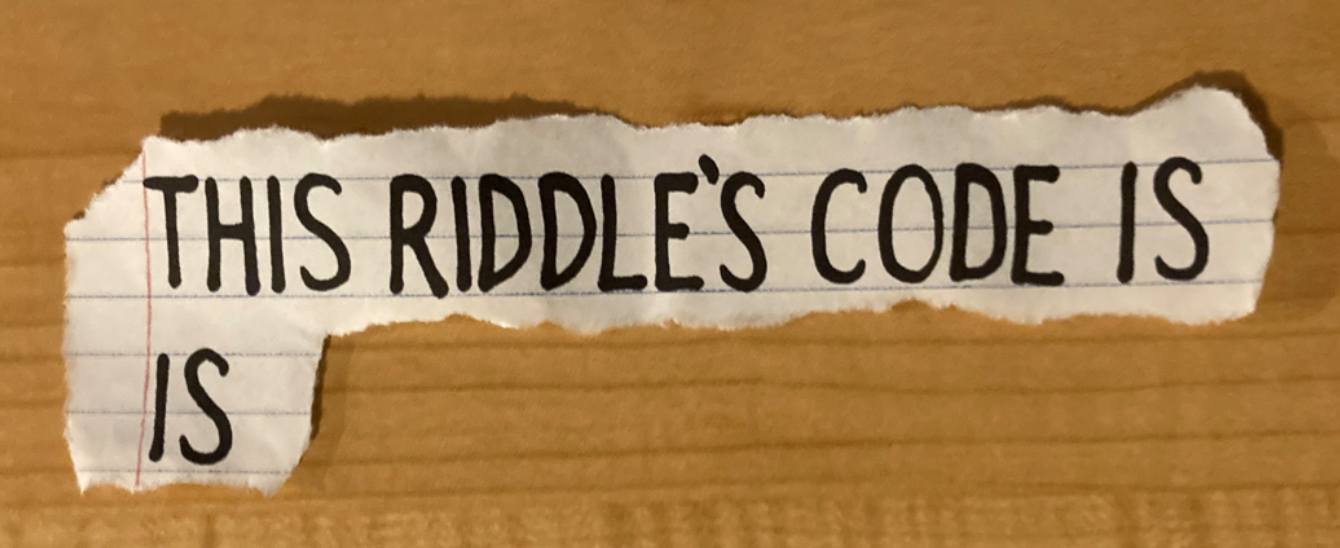 THIS RIDDLE'S CODE IS
IS